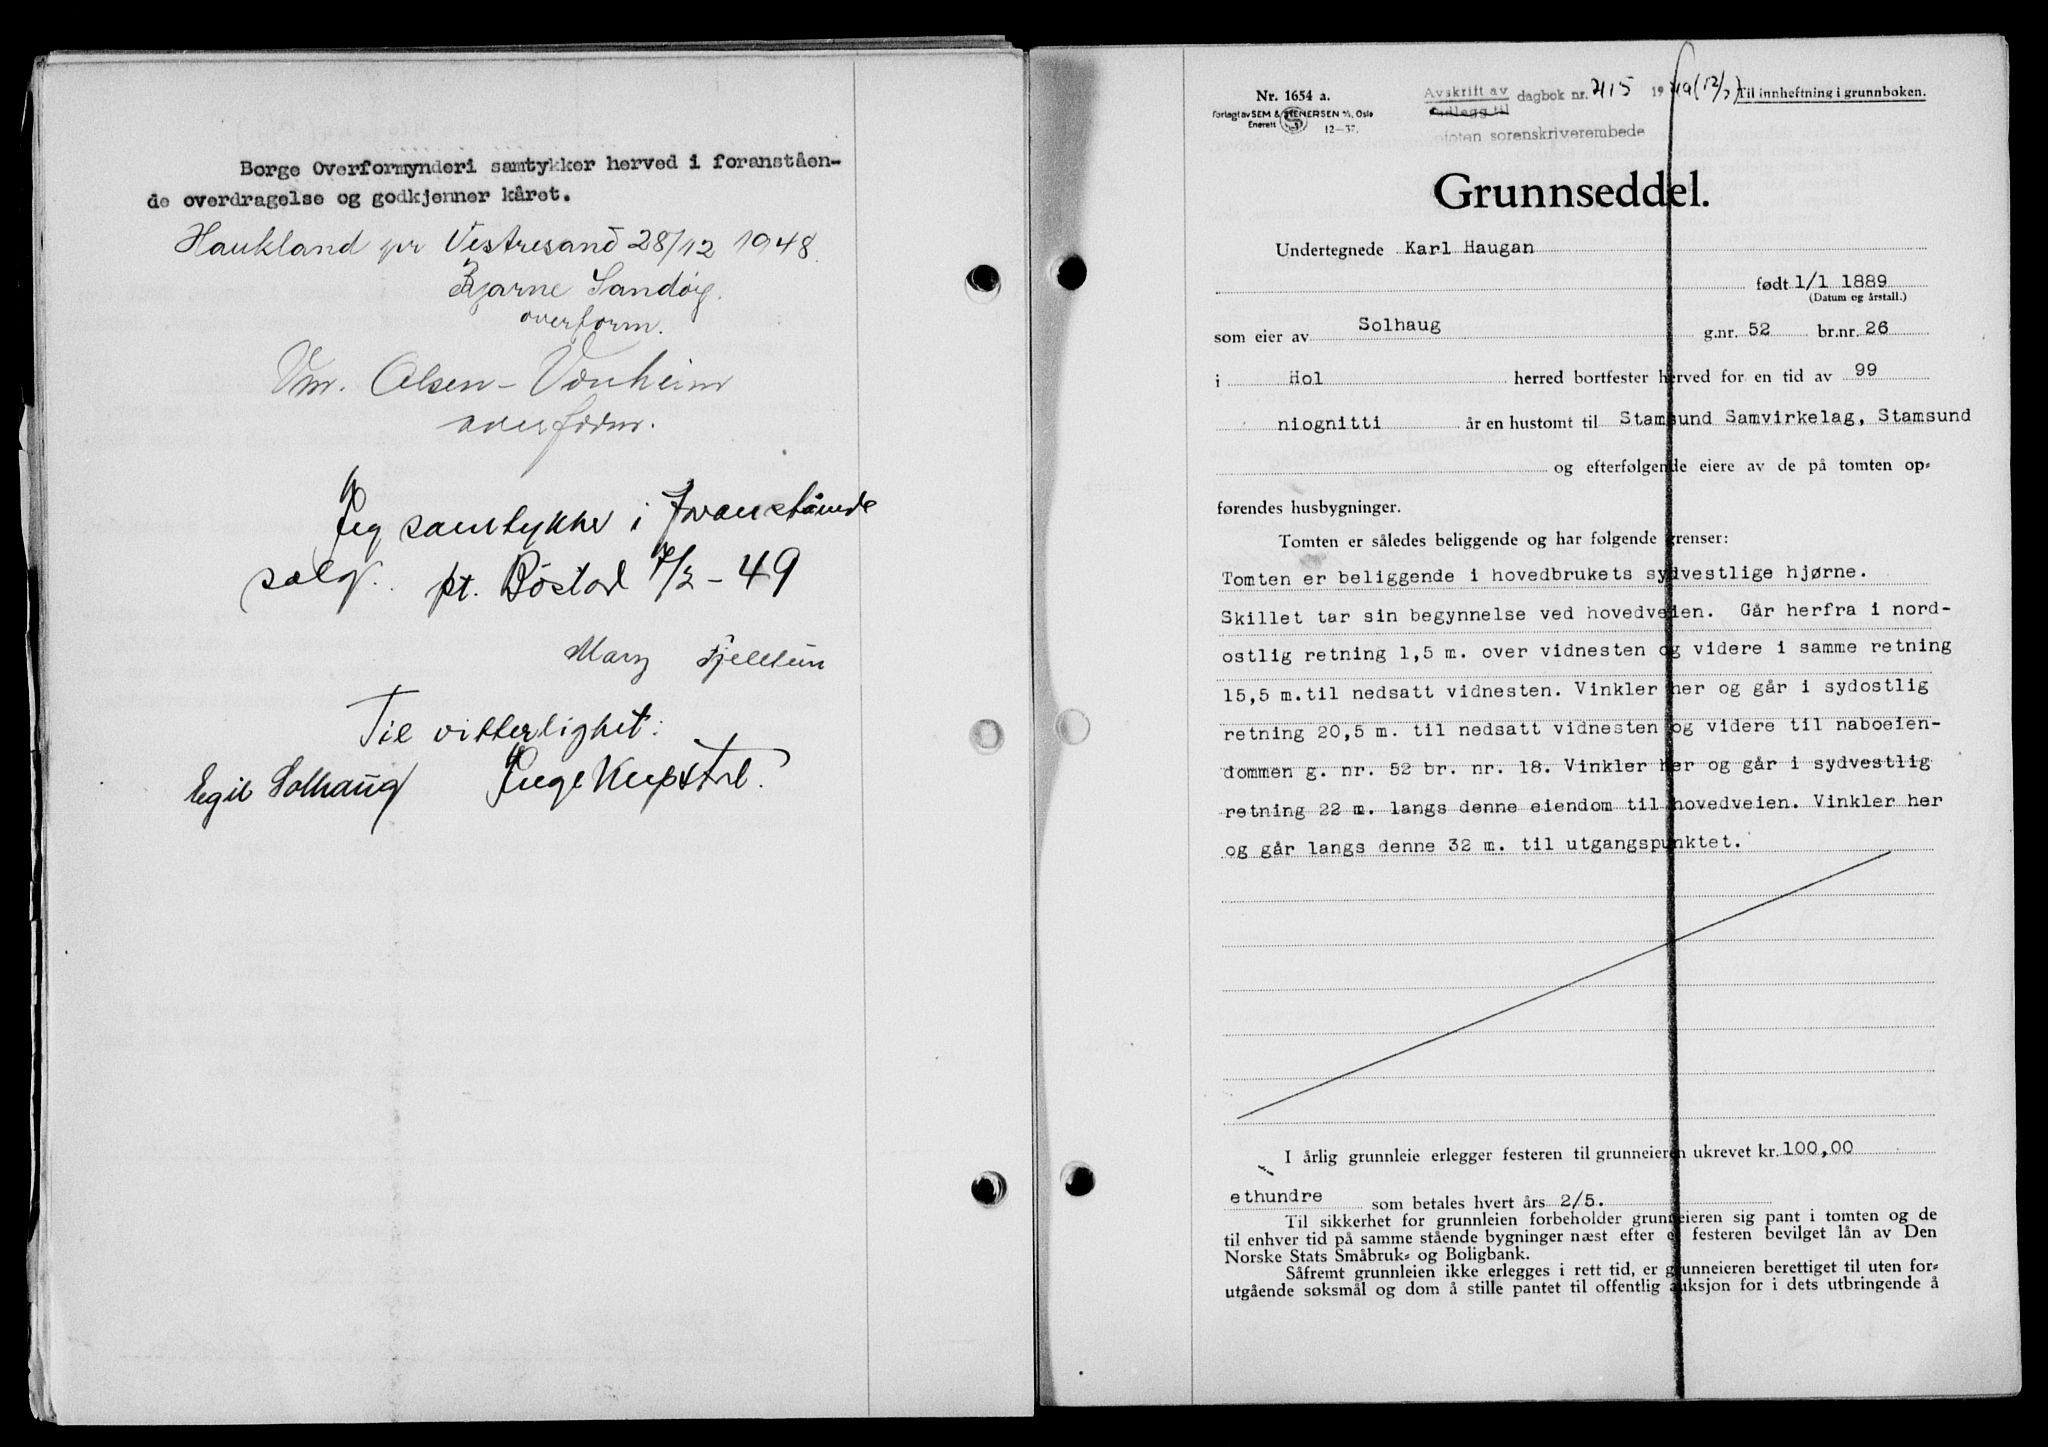 Borge Overformynderi samtykker herved i foranståen-
de overdragelse og godkjenner kåret.
Haukland pr Vestresand 28/12 1948.
Bjarne Sandøy.
overform.
Vm. Olsen-Vonheim
overform.
Jeg samtykker i foranstående
salg. pt. Bøstad 7/2-49
Mary Fjelltun
Til vitterlighet:
Egil Solhaug
Nr. 1654 a.
Forlagt av SEM & STENERSEN A/S, Oslo
Enerett
12-37.
Avskrift av dagbok nr. 415 19 49 (12/2) Til innheftning i grunnboken.
sorenskriverembede
Grunnseddel.
Undertegnede Karl Haugan
født 1/1 1889
(Datum og årstall.)
som eier av Solhaug g.nr. 52 br.nr. 26
i Hol herred bortfester herved for en tid av 99
niognitti år en hustomt til Stamsund Samvirkelag, Stamsund
og efterfølgende eiere av de på tomten op-
førendes husbygninger.
Tomten er således beliggende og har følgende grenser:
Tomten er beliggende i hovedbrukets sydvestlige hjørne.
Skillet tar sin begynnelse ved hovedveien. Går herfra i nord-
ostlig retning 1,5 m. over vidnesten og videre i samme retning
15,5 m. til nedsatt vidnesten. Vinkler her og går i sydostlig
retning 20,5 m. til nedsatt vidnesten og videre til naboeien-
dommen g. nr. 52 br. nr. 18. Vinkler her og går i sydvestlig
retning 22 m. langs denne eiendom til hovedveien. Vinkler her
og går langs denne 32 m. til utgangspunktet.
I årlig grunnleie erlegger festeren til grunneieren ukrevet kr. 100,00
ethundre som betales hvert års 2/5.
Til sikkerhet for grunnleien forbeholder grunneieren sig pant i tomten og de
til enhver tid på samme stående bygninger næst efter et festeren bevilget lån av Den
Norske Stats Småbruk- og Boligbank.
Såfremt grunnleien ikke erlegges i rett tid, er grunneieren berettiget til uten for-
utgående søksmål og dom å stille pantet til offentlig auksjon for i dets utbringende å